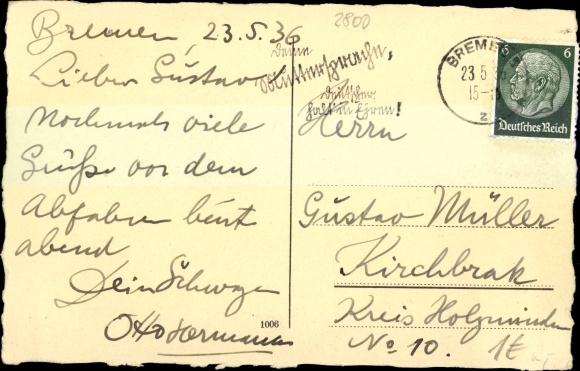 Bremen, 23.5.36
Lieber Gustav
Nochmals viele
Grüße vor dem
Abfahren heut
abend
Dein Schwager
Otto Hermann
1006
2800
deine
Muttersprache,
deutscher
halt in Ehren!
BREMEN
23.5
15-1
2
6 6
Deutsches Reich
Herrn
Gustav Müller
Kirchbrak
Kreis Holzminden
No 10.